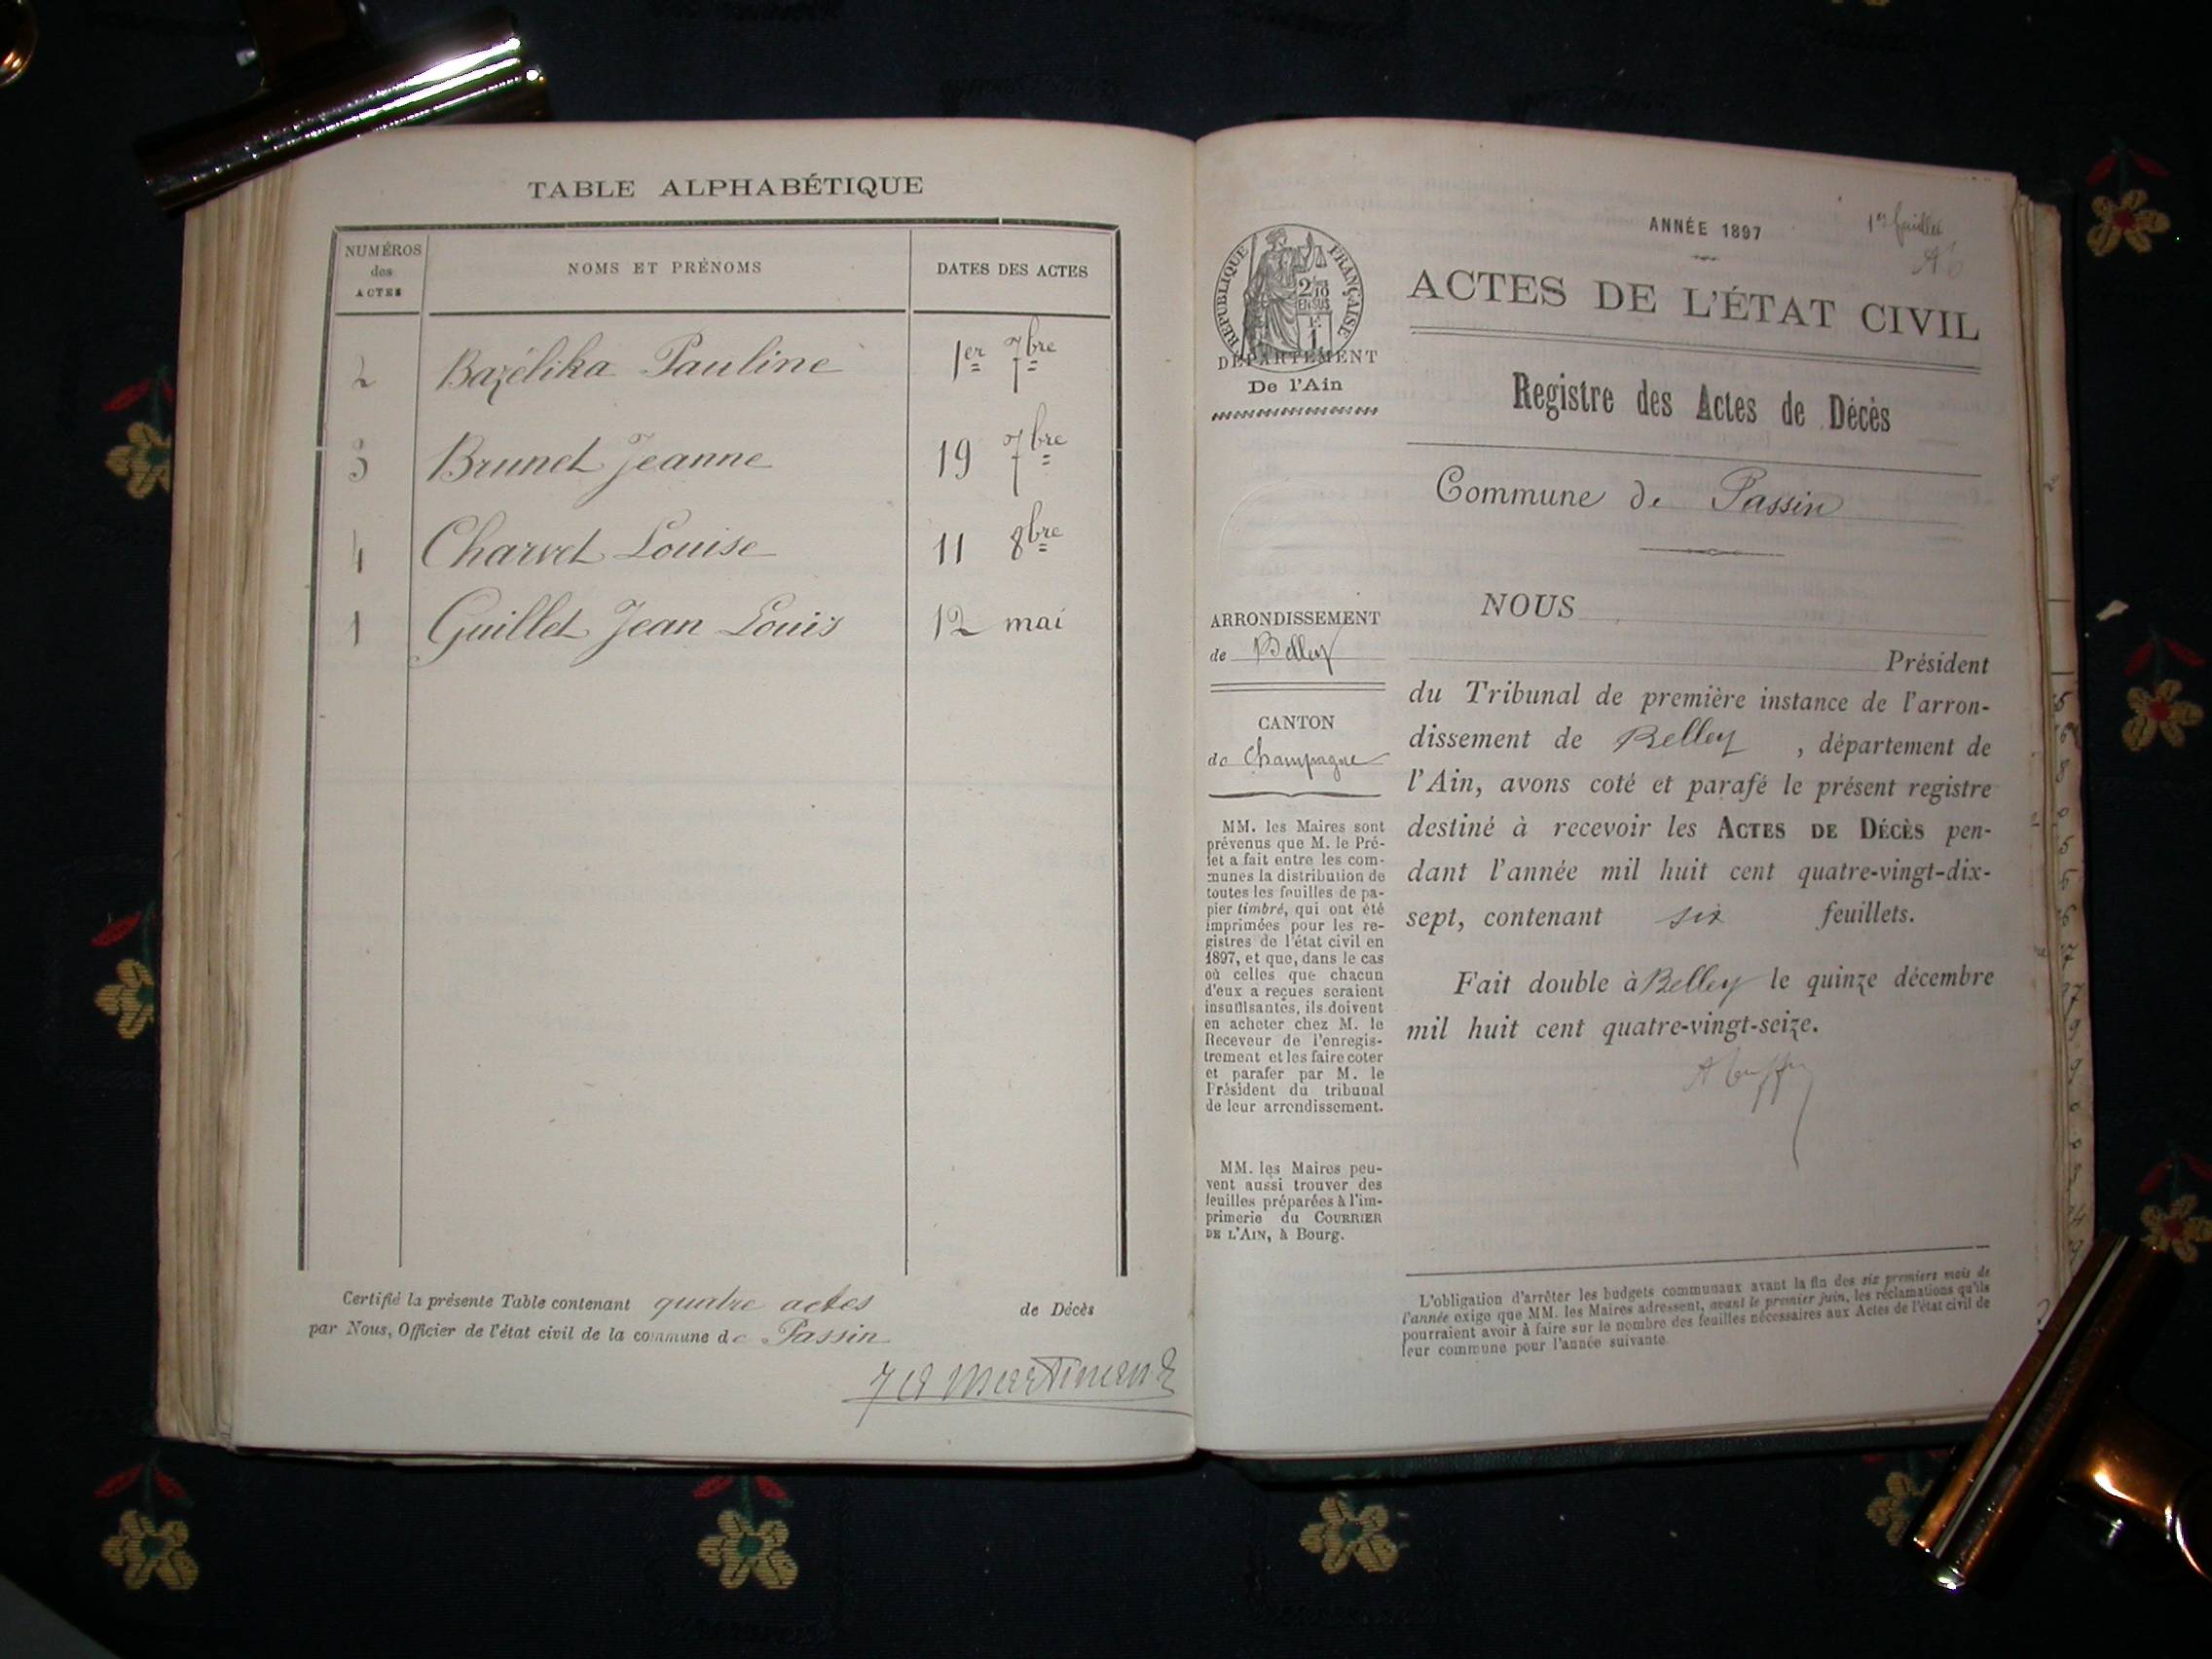 TABLE ALPHABÉTIQUE
NUMÉROS
des
ACTES
NOMS ET PRÉNOMS
DATES DES ACTES
2 Bazélika Pauline 1er 7bre
3 Brunet Jeanne 19 7bre
4 Charvet Louise 11 8bre
1 Guillet Jean Louis 12 mai
Certifié la présente Table contenant quatre actes de Décès
par Nous, Officier de l'état civil de la commune de Passin
Martinand
1er feuillet
ANNÉE 1897
ACTES DE L'ÉTAT CIVIL
RÉPUBLIQUE FRANÇAISE
2/10
EN SUS
1 F
DÉPARTEMENT
De l'Ain
Registre des Actes de Décès
Commune de Passin
ARRONDISSEMENT
de Belley
CANTON
de Champagne
MM. les Maires sont
prévenus que M. le Pré-
fet a fait entre les com-
munes la distribution de
toutes les feuilles de pa-
pier timbré, qui ont été
imprimées pour les re-
gistres de l'état civil en
1897, et que, dans le cas
où celles que chacun
d'eux a reçues seraient
insuffisantes, ils doivent
en acheter chez M. le
Receveur de l'enregis-
trement et les faire coter
et parafer par M. le
Président du tribunal
de leur arrondissement.
MM. les Maires peu-
vent aussi trouver des
feuilles préparées à l'im-
primerie du COURRIER
DE L'AIN, à Bourg.
NOUS
Président
du Tribunal de première instance de l'arron-
dissement de Belley , département de
l'Ain, avons coté et parafé le présent registre
destiné à recevoir les ACTES DE DÉCÈS pen-
dant l'année mil huit cent quatre-vingt-dix-
sept, contenant six feuillets.
Fait double à Belley le quinze décembre
mil huit cent quatre-vingt-seize.
L'obligation d'arrêter les budgets communaux avant la fin des six premiers mois de
l'année exige que MM. les Maires adressent, avant le premier juin, les réclamations qu'ils
pourraient avoir à faire sur le nombre des feuilles nécessaires aux Actes de l'état civil de
leur commune pour l'année suivante.